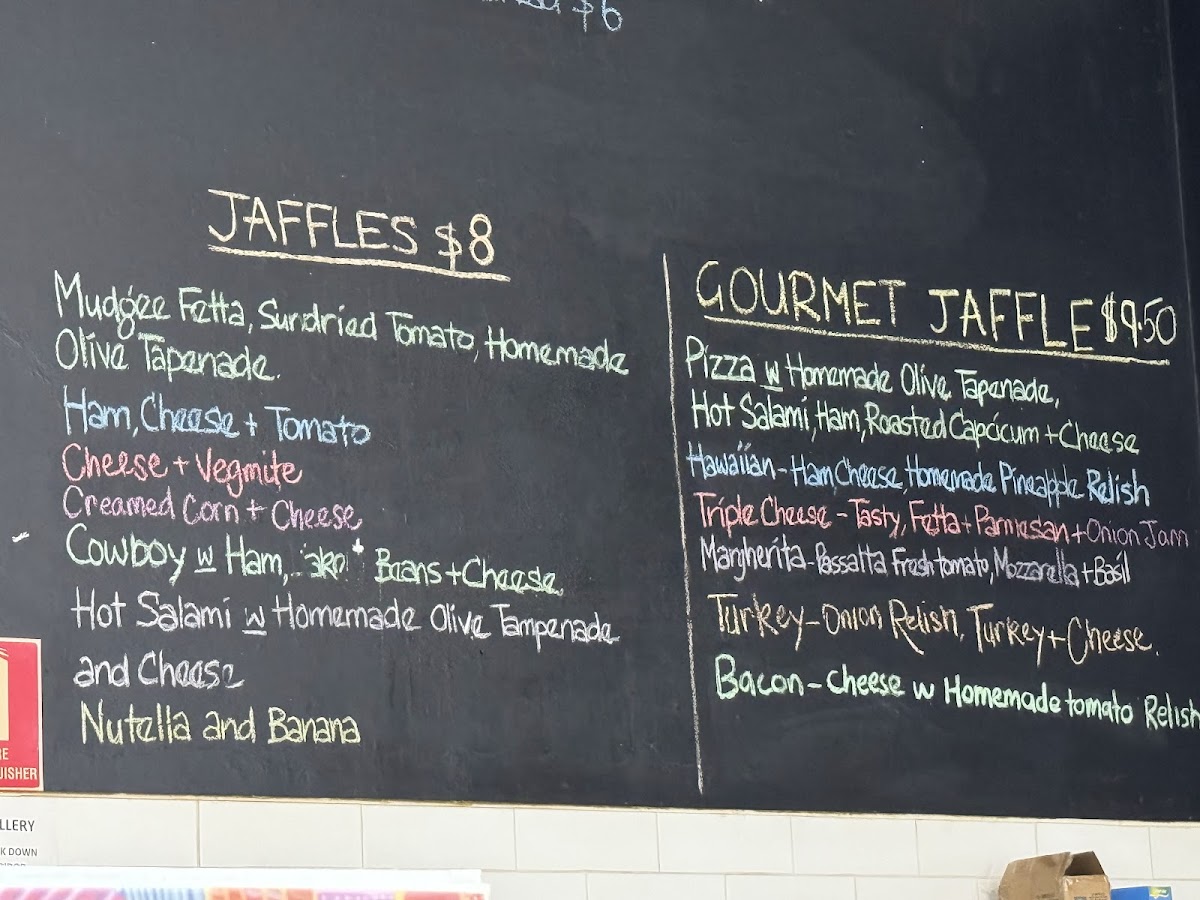 $6
JAFFLES $8
Mudgee Fetta, Sundried Tomato, Homemade
Olive Tapenade.
Ham, Cheese + Tomato
Cheese + Vegmite
Creamed Corn + Cheese
Cowboy w Ham, Beans + Cheese
Hot Salami w Homemade Olive Tampenade
and Cheese
Nutella and Banana
GOURMET JAFFLE $9.50
Pizza w Homemade Olive Tapenade,
Hot Salami, Ham, Roasted Capcicum + Cheese
Hawaiian - Ham, Cheese, Homemade Pineapple Relish
Triple Cheese - Tasty, Fetta + Parmesan + Onion Jam
Margherita - Passatta Fresh tomato, Mozzarella + Basil
Turkey - Onion Relish, Turkey + Cheese.
Bacon - Cheese w Homemade tomato Relish
RE
UISHER
LLERY
K DOWN